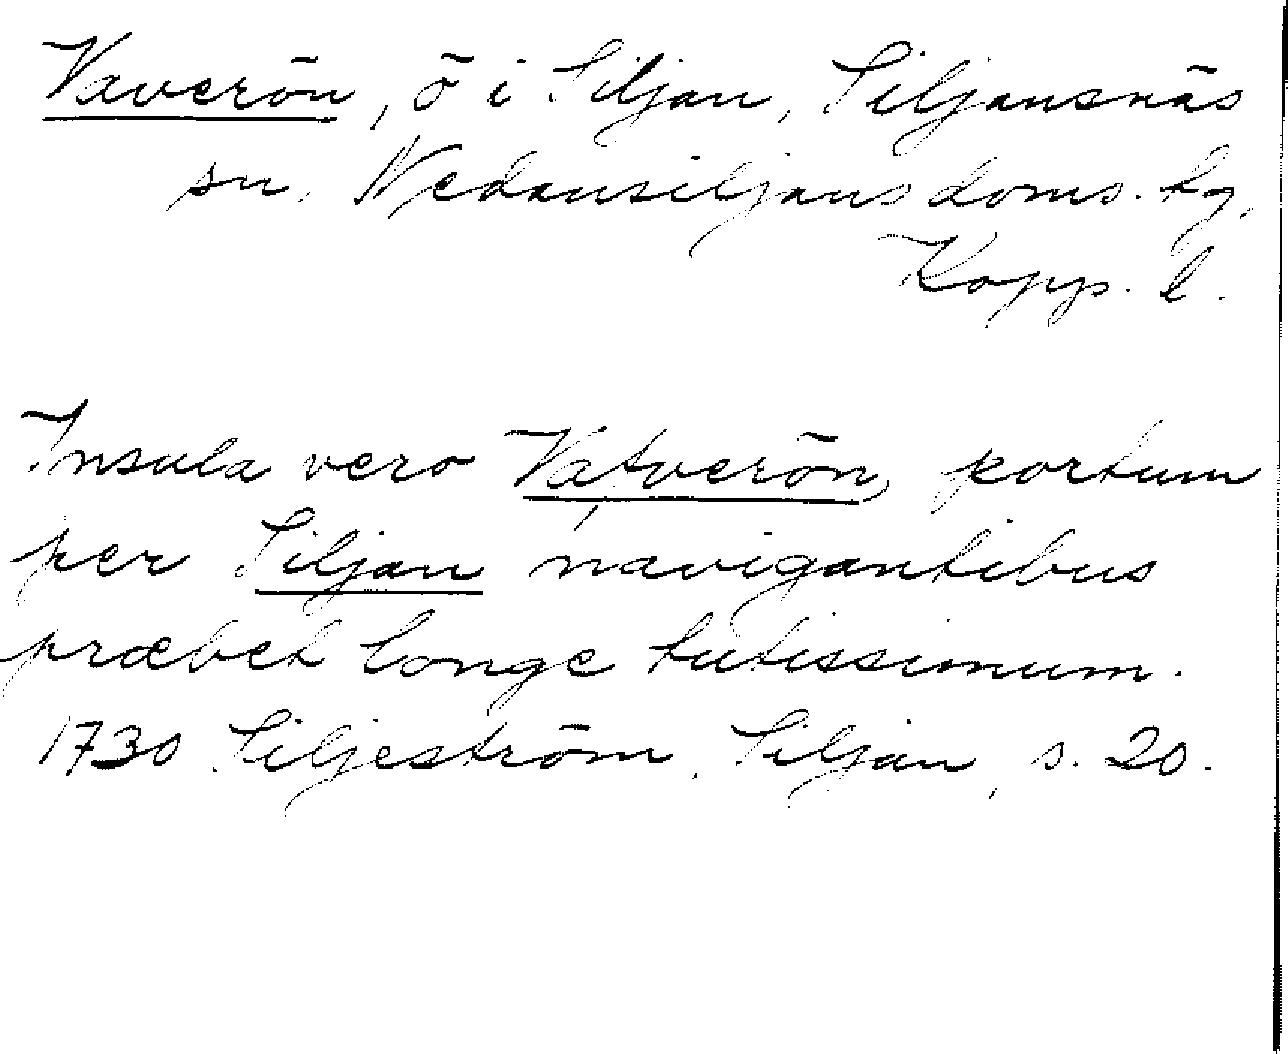 Vaverön, ö i Siljan, Siljansnäs
sn. Nedansiljans doms. tg,
Kopp. l.
Insula vero Vatverön, portum
per Siljan navigantibus
præbet longe tutissimum.
1730 Siljeström, Siljan, s. 20.